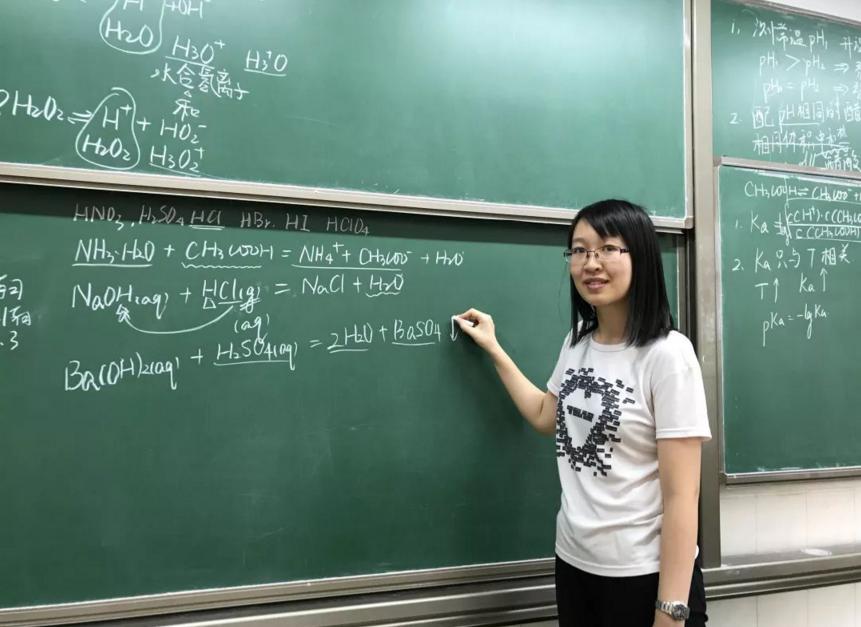 +OH⁻
H2O
H3O⁺ H3⁺O
水合氢离子
和
H2O2 ⇌ H⁺ + HO2⁻
H2O2 H3O2⁺
HNO3, H2SO4 HCl HBr. HI HClO4
NH3·H2O + CH3COOH = NH4⁺ + CH3COO⁻ + H2O
NaOH(aq) + HCl(g) = NaCl + H2O
(aq)
Ba(OH)2(aq) + H2SO4(aq) = 2H2O + BaSO4 ↓
3
1.
pH1 > pH2 ⇒
pH1 = pH2 ⇒
2. 配 pH相同的
CH3COOH ⇌ CH3COO⁻ +
1. Ka = c(H⁺)·c(CH3COO
c(CH3COOH)
2. Ka只与T相关
T↑ Ka↑
pKa = -lgKa